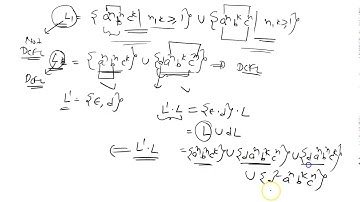 L₁ = {aⁿbⁿcᵏ | n,k ≥ 1} ∪ {aⁿbᵏcⁿ | n,k ≥ 1}
Not DCFL
L = {aⁿbⁿcᵏ} ∪ {daⁿbᵏcⁿ} → DCFL
DCFL
L' = {ε, d}
L'·L = {ε, d}·L
= L ∪ dL
L'·L = {aⁿbⁿcᵏ} ∪ {daⁿbᵏcⁿ} ∪ {daⁿbⁿcᵏ}
∪ {d²aⁿbᵏcⁿ}